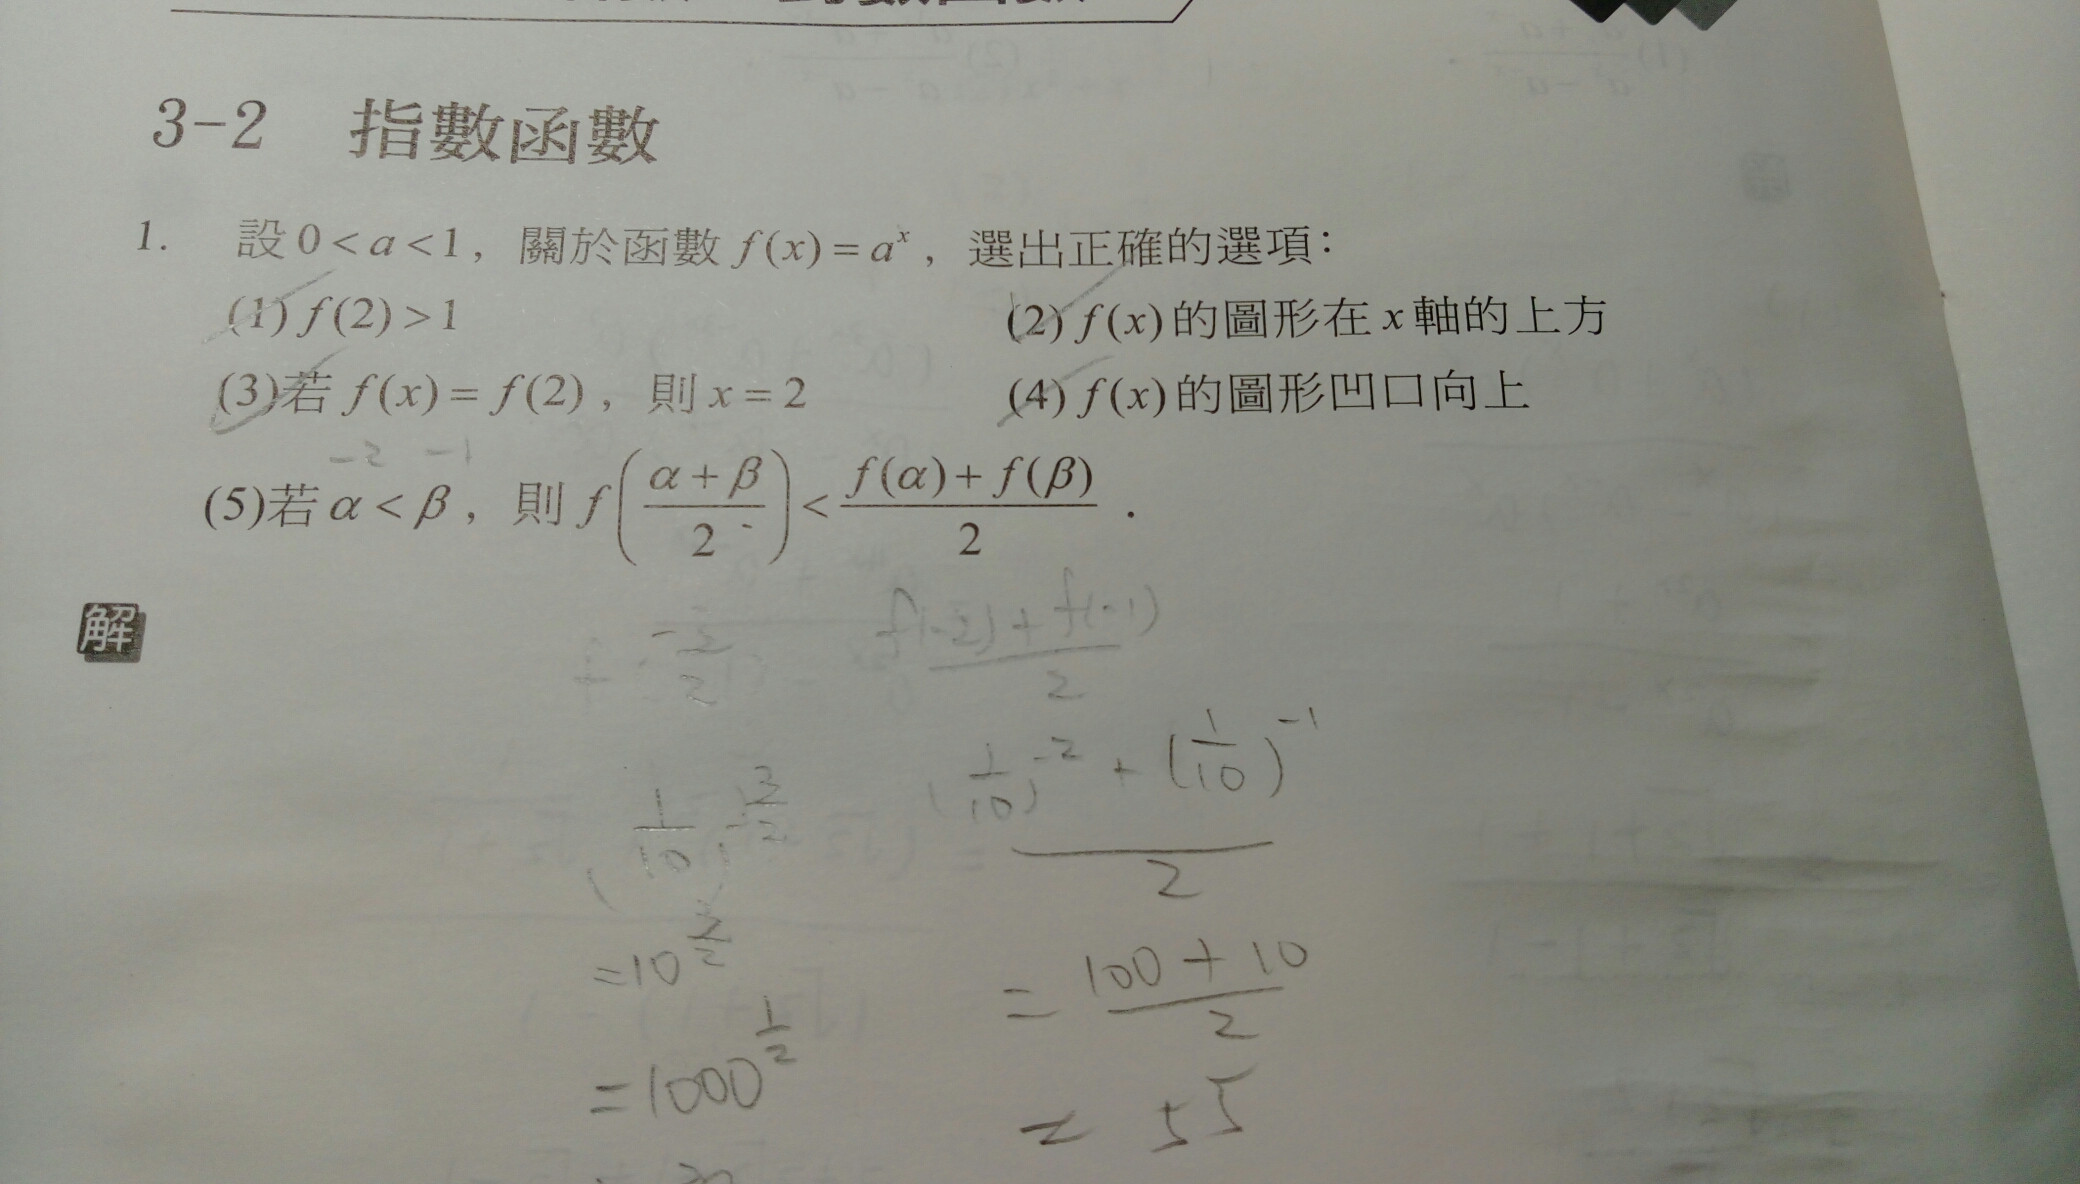 3-2 指數函數
1. 設 0 < a < 1，關於函數 f(x) = aˣ，選出正確的選項：
(1) f(2) > 1 (2) f(x) 的圖形在 x 軸的上方
(3)若 f(x) = f(2)，則 x = 2 (4) f(x) 的圖形凹口向上
-2 -1
(5)若 α < β，則 f((α + β)/2) < (f(α) + f(β))/2 .
解
-3/2 (f(-2) + f(-1))/2
(1/10)^(-3/2) ((1/10)^(-2) + (1/10)^(-1))/2
= 10^(3/2) = (100 + 10)/2
= 1000^(1/2) = 55